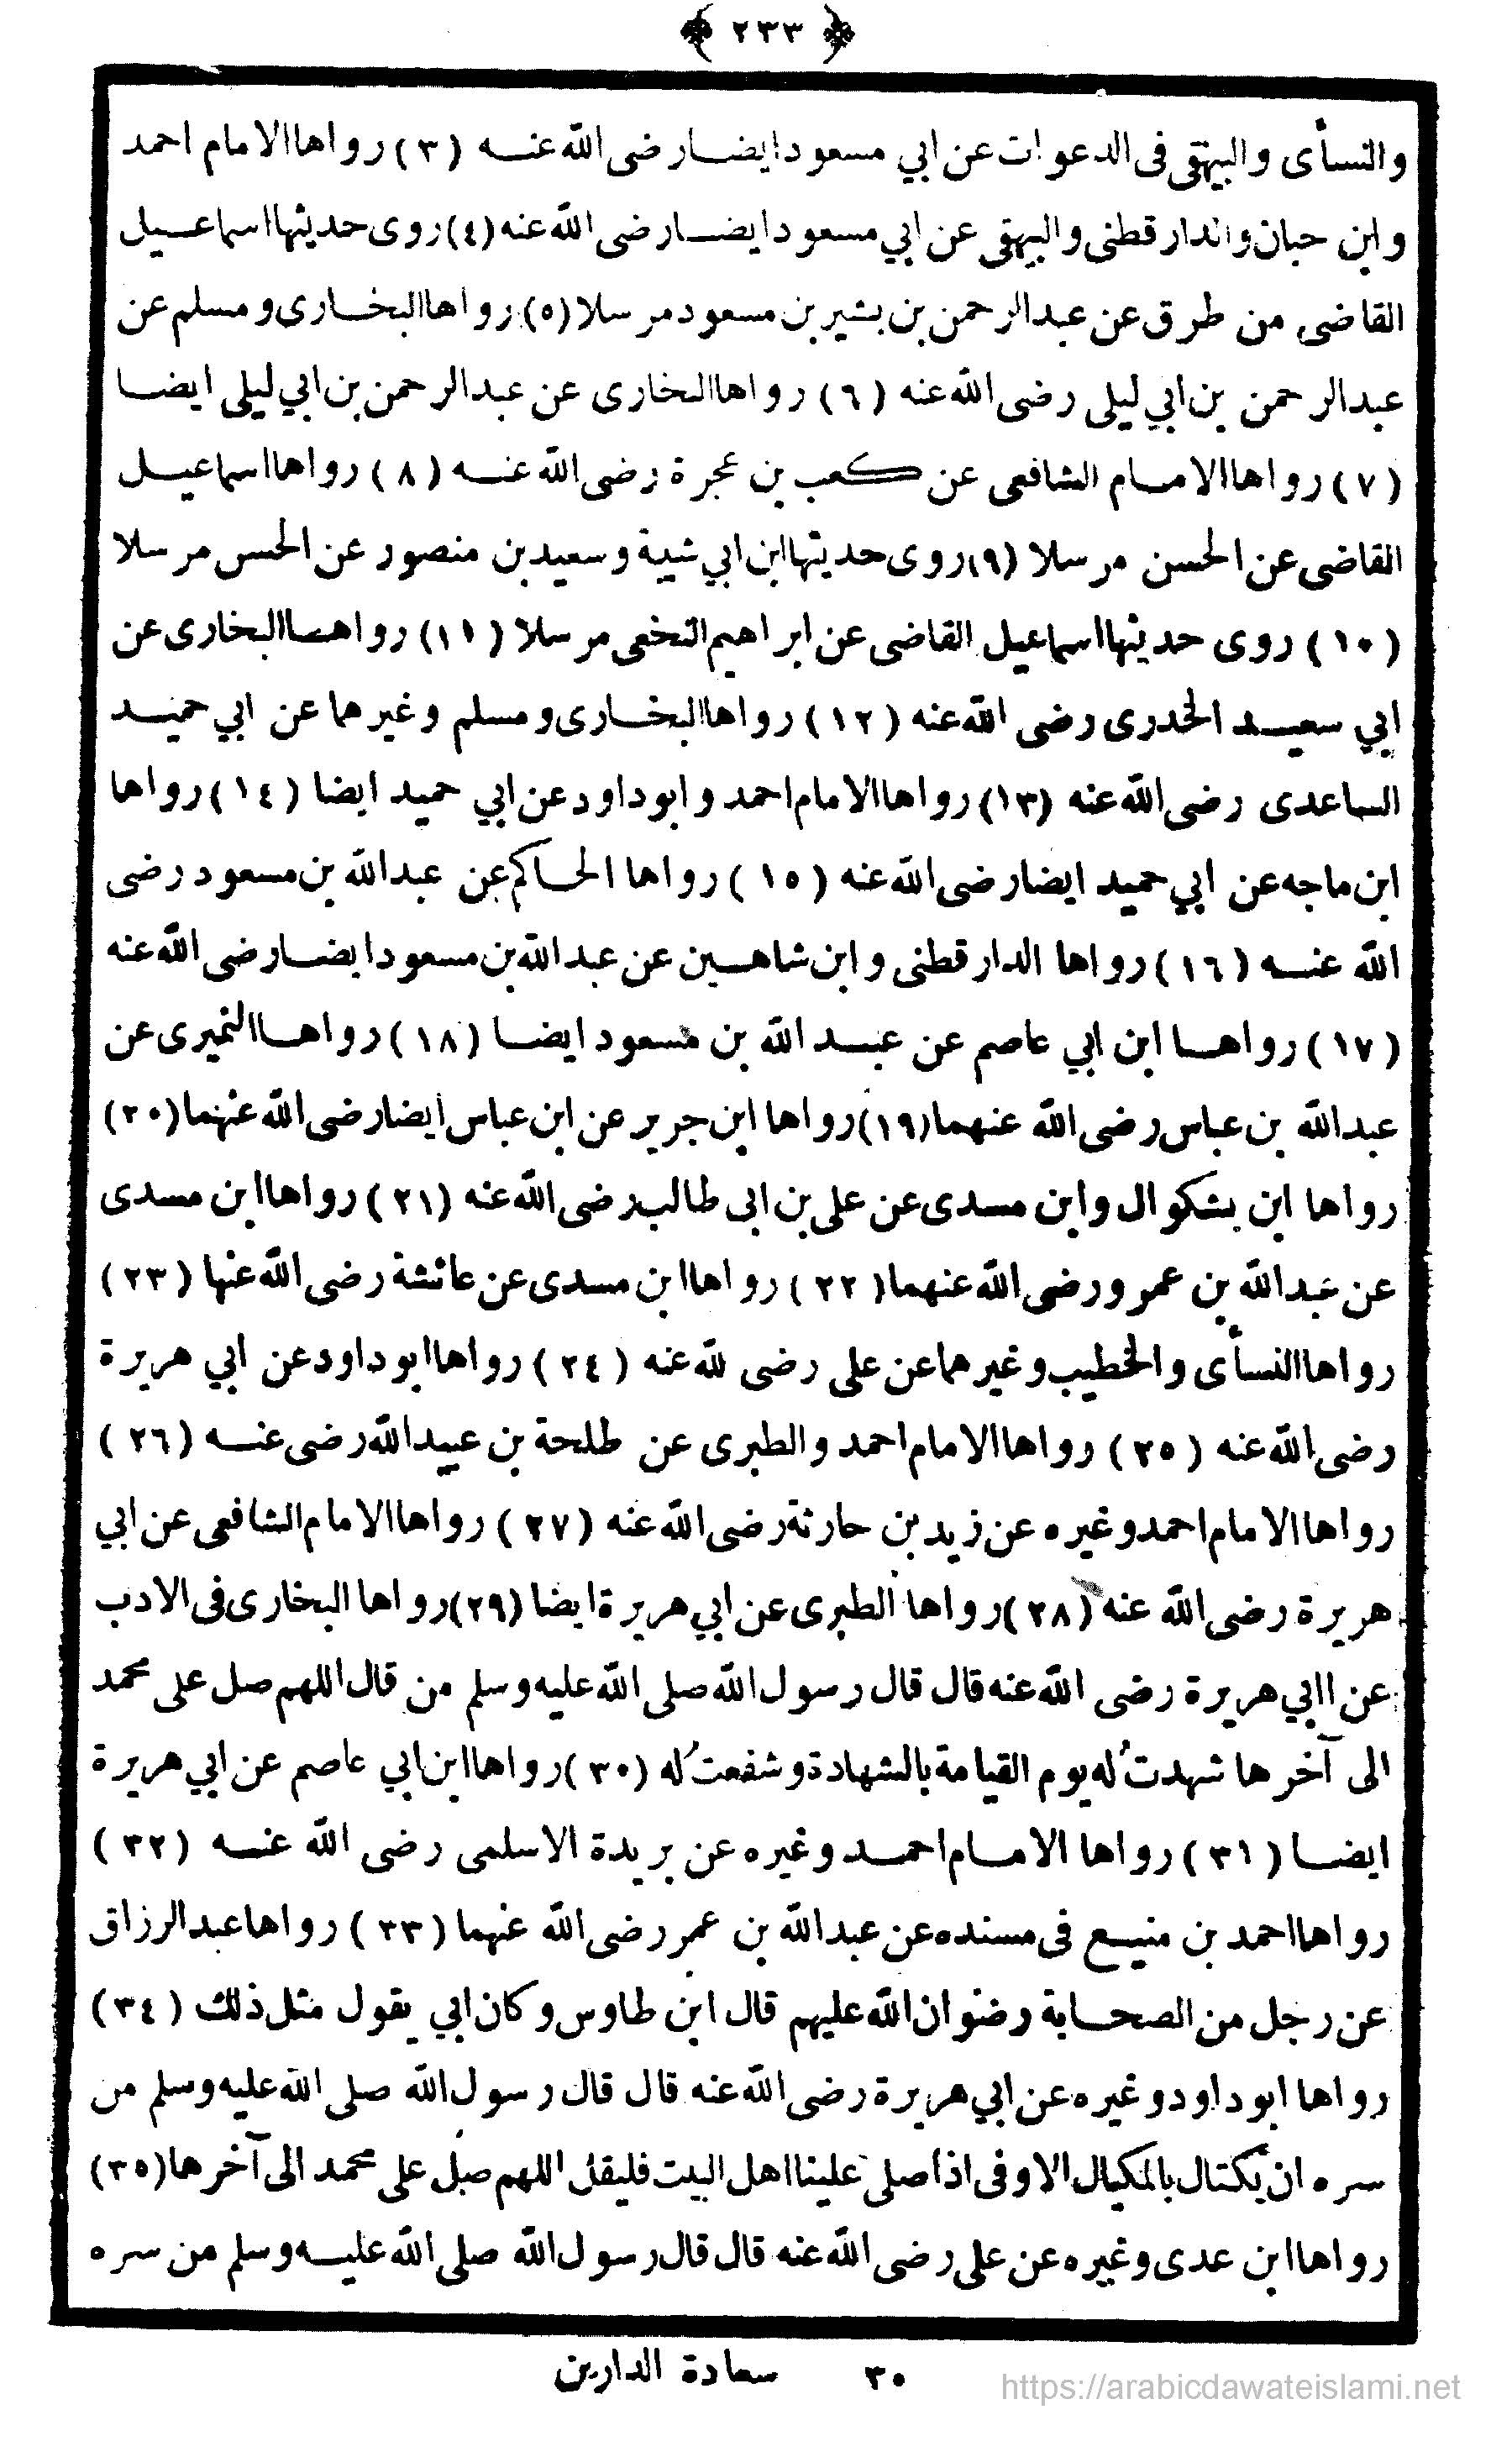 ﴿ ٢٣٣ ﴾
والنسأى والبيهقى فى الدعوات عن ابي مسعود ايضا رضى الله عنه (٣) رواها الامام احمد
وابن حبان والدارقطنى والبيهقى عن ابي مسعود ايضا رضى الله عنه (٤) روى حديثها اسماعيل
القاضى من طرق عن عبدالرحمن بن بشير بن مسعود مرسلا (٥) رواها البخارى ومسلم عن
عبدالرحمن بن ابي ليلى رضى الله عنه (٦) رواها البخارى عن عبدالرحمن بن ابي ليلى ايضا
(٧) رواها الامام الشافعى عن كعب بن عجرة رضى الله عنه (٨) رواها اسماعيل
القاضى عن الحسن مرسلا (٩) روى حديثها ابن ابي شيبة وسعيد بن منصور عن الحسن مرسلا
(١٠) روى حديثها اسماعيل القاضى عن ابراهيم النخعى مرسلا (١١) رواها البخارى عن
ابي سعيد الخدرى رضى الله عنه (١٢) رواها البخارى ومسلم وغيرهما عن ابي حميد
الساعدى رضى الله عنه (١٣) رواها الامام احمد وابو داود عن ابي حميد ايضا (١٤) رواها
ابن ماجه عن ابي حميد ايضا رضى الله عنه (١٥) رواها الحاكم عن عبدالله بن مسعود رضى
الله عنه (١٦) رواها الدارقطنى وابن شاهين عن عبدالله بن مسعود ايضا رضى الله عنه
(١٧) رواها ابن ابي عاصم عن عبد الله بن مسعود ايضا (١٨) رواها النميرى عن
عبدالله بن عباس رضى الله عنهما (١٩) رواها ابن جرير عن ابن عباس ايضا رضى الله عنهما (٢٠)
رواها ابن بشكوال وابن مسدى عن على بن ابى طالب رضى الله عنه (٢١) رواها ابن مسدى
عن عبدالله بن عمرو رضى الله عنهما (٢٢) رواها ابن مسدى عن عائشة رضى الله عنها (٢٣)
رواها النسأى والخطيب وغيرهما عن على رضى لله عنه (٢٤) رواها ابو داود عن ابي هريرة
رضى الله عنه (٢٥) رواها الامام احمد والطبرى عن طلحة بن عبيدالله رضى عنه (٢٦)
رواها الامام احمد وغيره عن زيد بن حارثة رضى الله عنه (٢٧) رواها الامام الشافعى عن ابي
هريرة رضى الله عنه (٢٨) رواها الطبرى عن ابي هريرة ايضا (٢٩) رواها البخارى فى الادب
عن اابي هريرة رضى الله عنه قال قال رسول الله صلى الله عليه وسلم من قال اللهم صل على محمد
الى آخرها شهدتُ له يوم القيامة بالشهادة وشفعتُ له (٣٠) رواها ابن ابي عاصم عن ابي هريرة
ايضا (٣١) رواها الامام احمد وغيره عن بريدة الاسلمى رضى الله عنه (٣٢)
رواها احمد بن منيع فى مسنده عن عبدالله بن عمر رضى الله عنهما (٣٣) رواها عبدالرزاق
عن رجل من الصحابة رضوان الله عليهم قال ابن طاوس وكان ابي يقول مثل ذلك (٣٤)
رواها ابو داود وغيره عن ابي هريرة رضى الله عنه قال قال رسول الله صلى الله عليه وسلم من
سره ان يكتال بالمكيال الاوفى اذا صلى علينا اهل البيت فليقل اللهم صل على محمد الى آخرها (٣٥)
رواها ابن عدى وغيره عن على رضى الله عنه قال قال رسول الله صلى الله عليه وسلم من سره
٣٠ سعادة الدارين
https://arabicdawateislami.net